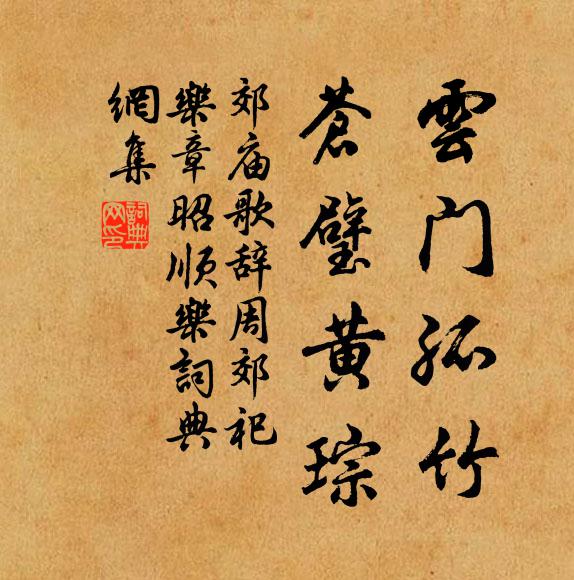 雲门孤竹
蒼璧黄琮
郊庙歌辞周郊祀
樂章昭順樂詞典
網集
詞典
网印